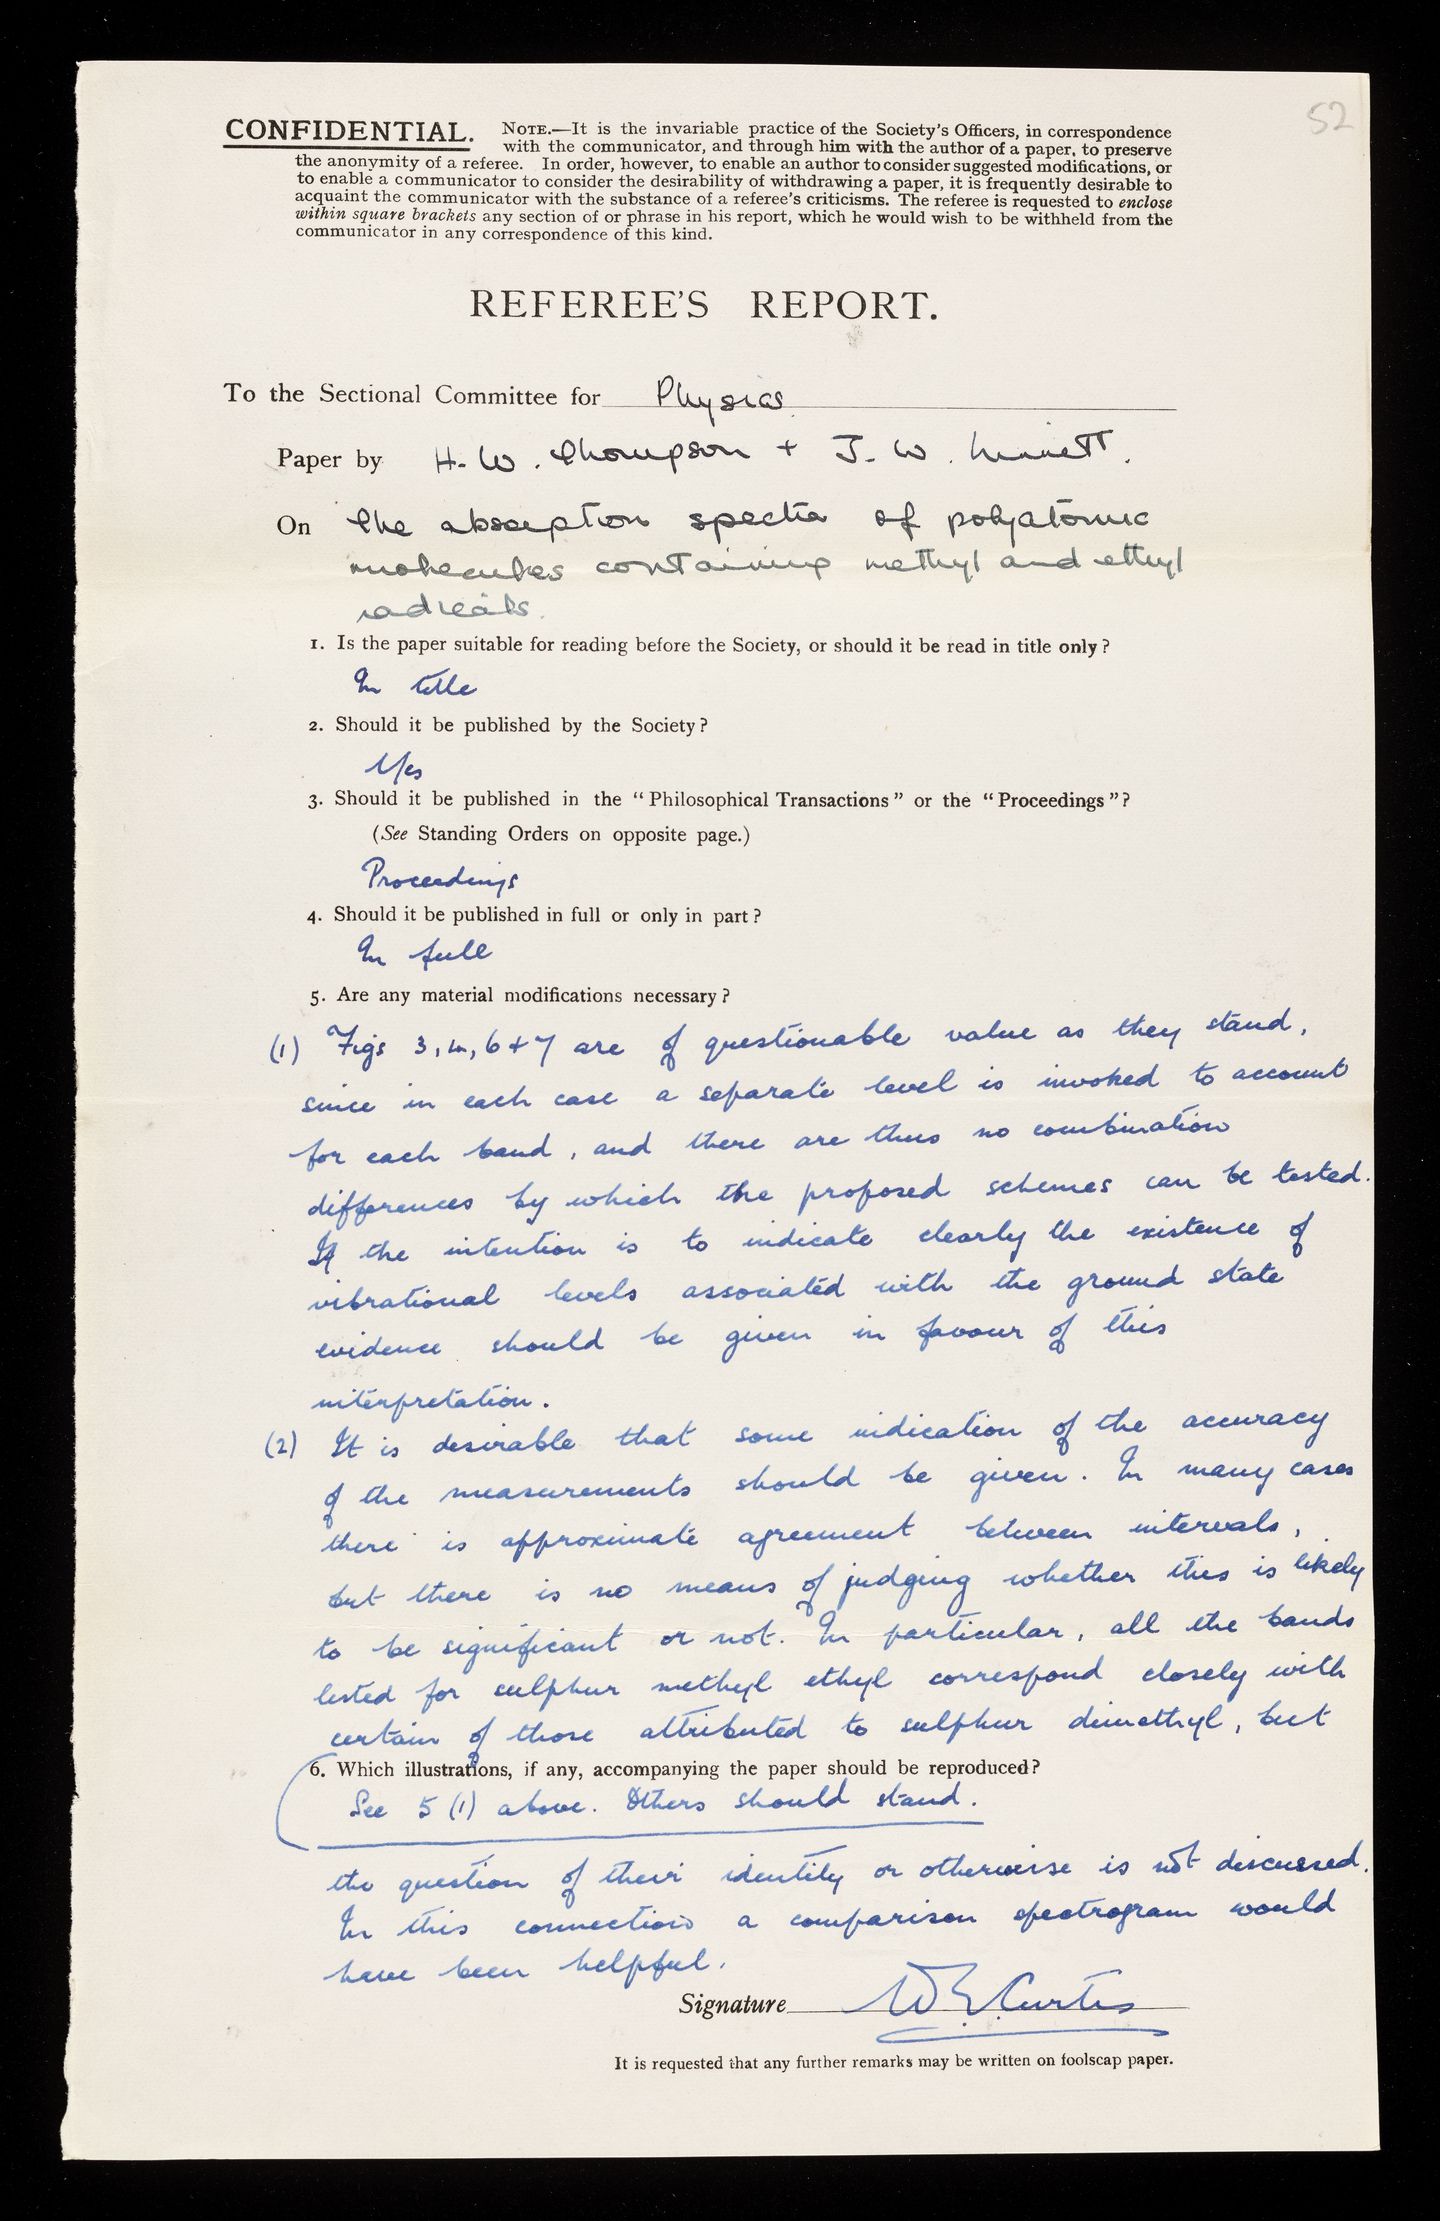 52
CONFIDENTIAL. NOTE.—It is the invariable practice of the Society's Officers, in correspondence
with the communicator, and through him with the author of a paper, to preserve
the anonymity of a referee. In order, however, to enable an author to consider suggested modifications, or
to enable a communicator to consider the desirability of withdrawing a paper, it is frequently desirable to
acquaint the communicator with the substance of a referee's criticisms. The referee is requested to enclose
within square brackets any section of or phrase in his report, which he would wish to be withheld from the
communicator in any correspondence of this kind.
REFEREE'S REPORT.
To the Sectional Committee for Physics
Paper by H. W. Thompson + J. W. Linnett.
On The absorption spectra of polyatomic
molecules containing methyl and ethyl
radicals.
1. Is the paper suitable for reading before the Society, or should it be read in title only?
In title
2. Should it be published by the Society?
Yes
3. Should it be published in the "Philosophical Transactions" or the "Proceedings"?
(See Standing Orders on opposite page.)
Proceedings
4. Should it be published in full or only in part?
In full
5. Are any material modifications necessary?
(1) Figs 3, 4, 6 + 7 are of questionable value as they stand,
since in each case a separate level is invoked to account
for each band, and there are thus no combination
differences by which the proposed schemes can be tested.
If the intention is to indicate clearly the existence of
vibrational levels associated with the ground state
evidence should be given in favour of this
interpretation.
(2) It is desirable that some indication of the accuracy
of the measurements should be given. In many cases
there is approximate agreement between intervals,
but there is no means of judging whether this is likely
to be significant or not. In particular, all the bands
listed for sulphur methyl ethyl correspond closely with
certain of those attributed to sulphur dimethyl, but
6. Which illustrations, if any, accompanying the paper should be reproduced?
See 5 (1) above. Others should stand.
the question of their identity or otherwise is not discussed.
In this connection a comparison spectrogram would
have been helpful.
Signature W. E. Curtis
It is requested that any further remarks may be written on foolscap paper.